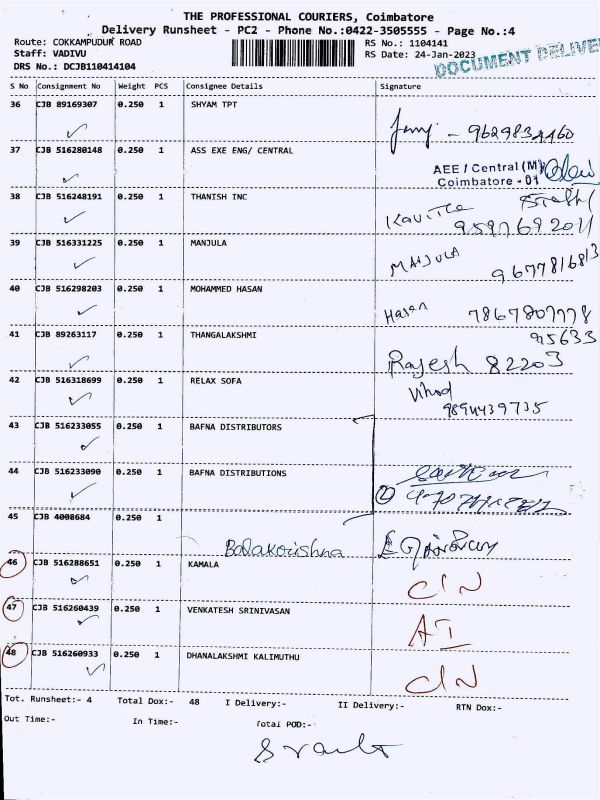 THE PROFESSIONAL COURIERS, Coimbatore
Delivery Runsheet - PC2 - Phone No.:0422-3505555 - Page No.:4
Route: COKKAMPUDUR ROAD RS No.: 1104141
Staff: VADIVU RS Date: 24-Jan-2023
DOCUMENT DELIVE
DRS No.: DCJB110414104
S No Consignment No Weight PCS Consignee Details Signature
36 CJB 89169307 0.250 1 SHYAM TPT
- 9629834460
37 CJB 516280148 0.250 1 ASS EXE ENG/ CENTRAL
AEE / Central (M)
Coimbatore - 01
38 CJB 516248191 0.250 1 THANISH INC
Kavitha
9597692011
39 CJB 516331225 0.250 1 MANJULA
MANJULA 9677816813
40 CJB 516298203 0.250 1 MOHAMMED HASAN
Hasan 7867807778
41 CJB 89263117 0.250 1 THANGALAKSHMI
95633
Rajesh 82203
42 CJB 516318699 0.250 1 RELAX SOFA
Vinod
9894439735
43 CJB 516233055 0.250 1 BAFNA DISTRIBUTORS
44 CJB 516233090 0.250 1 BAFNA DISTRIBUTIONS
2
45 CJB 4008684 0.250 1
Balakrishna
46 CJB 516288651 0.250 1 KAMALA
C/N
47 CJB 516260439 0.250 1 VENKATESH SRINIVASAN
AI
48 CJB 516260933 0.250 1 DHANALAKSHMI KALIMUTHU
C/N
Tot. Runsheet:- 4 Total Dox:- 48 I Delivery:- II Delivery:- RTN Dox:-
Out Time:- In Time:- Total POD:-